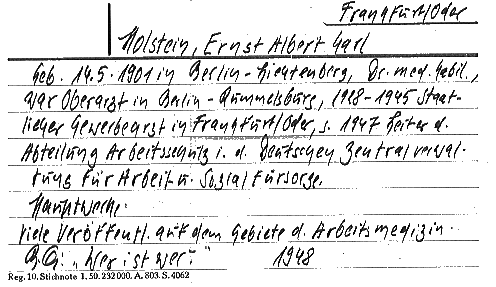 Frankfurt/Oder
Holstein, Ernst Albert Carl
Geb. 14.5.1901 in Berlin-Lichtenberg, Dr. med. habil.,
war Oberarzt in Berlin-Rummelsburg, 1928-1945 Staat-
licher Gewerbearzt in Frankfurt/Oder, s. 1947 Leiter d.
Abteilung Arbeitsschutz i. d. Deutschen Zentralverwal-
tung für Arbeit u. Sozialfürsorge.
Hauptwerke:
Viele Veröffentl. auf dem Gebiete d. Arbeitsmedizin.
"Wer ist wer?" 1948
Reg. 10. Stichnote 1. 50. 232 000. A. 803. S. 4062